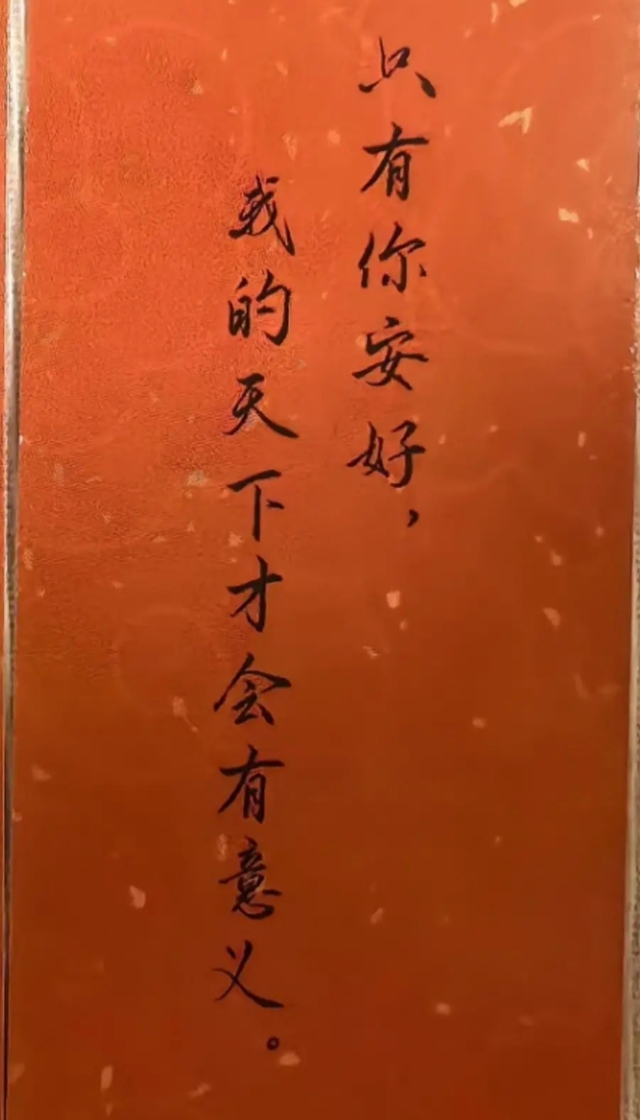 只有你安好，
我的天下才会有意义。